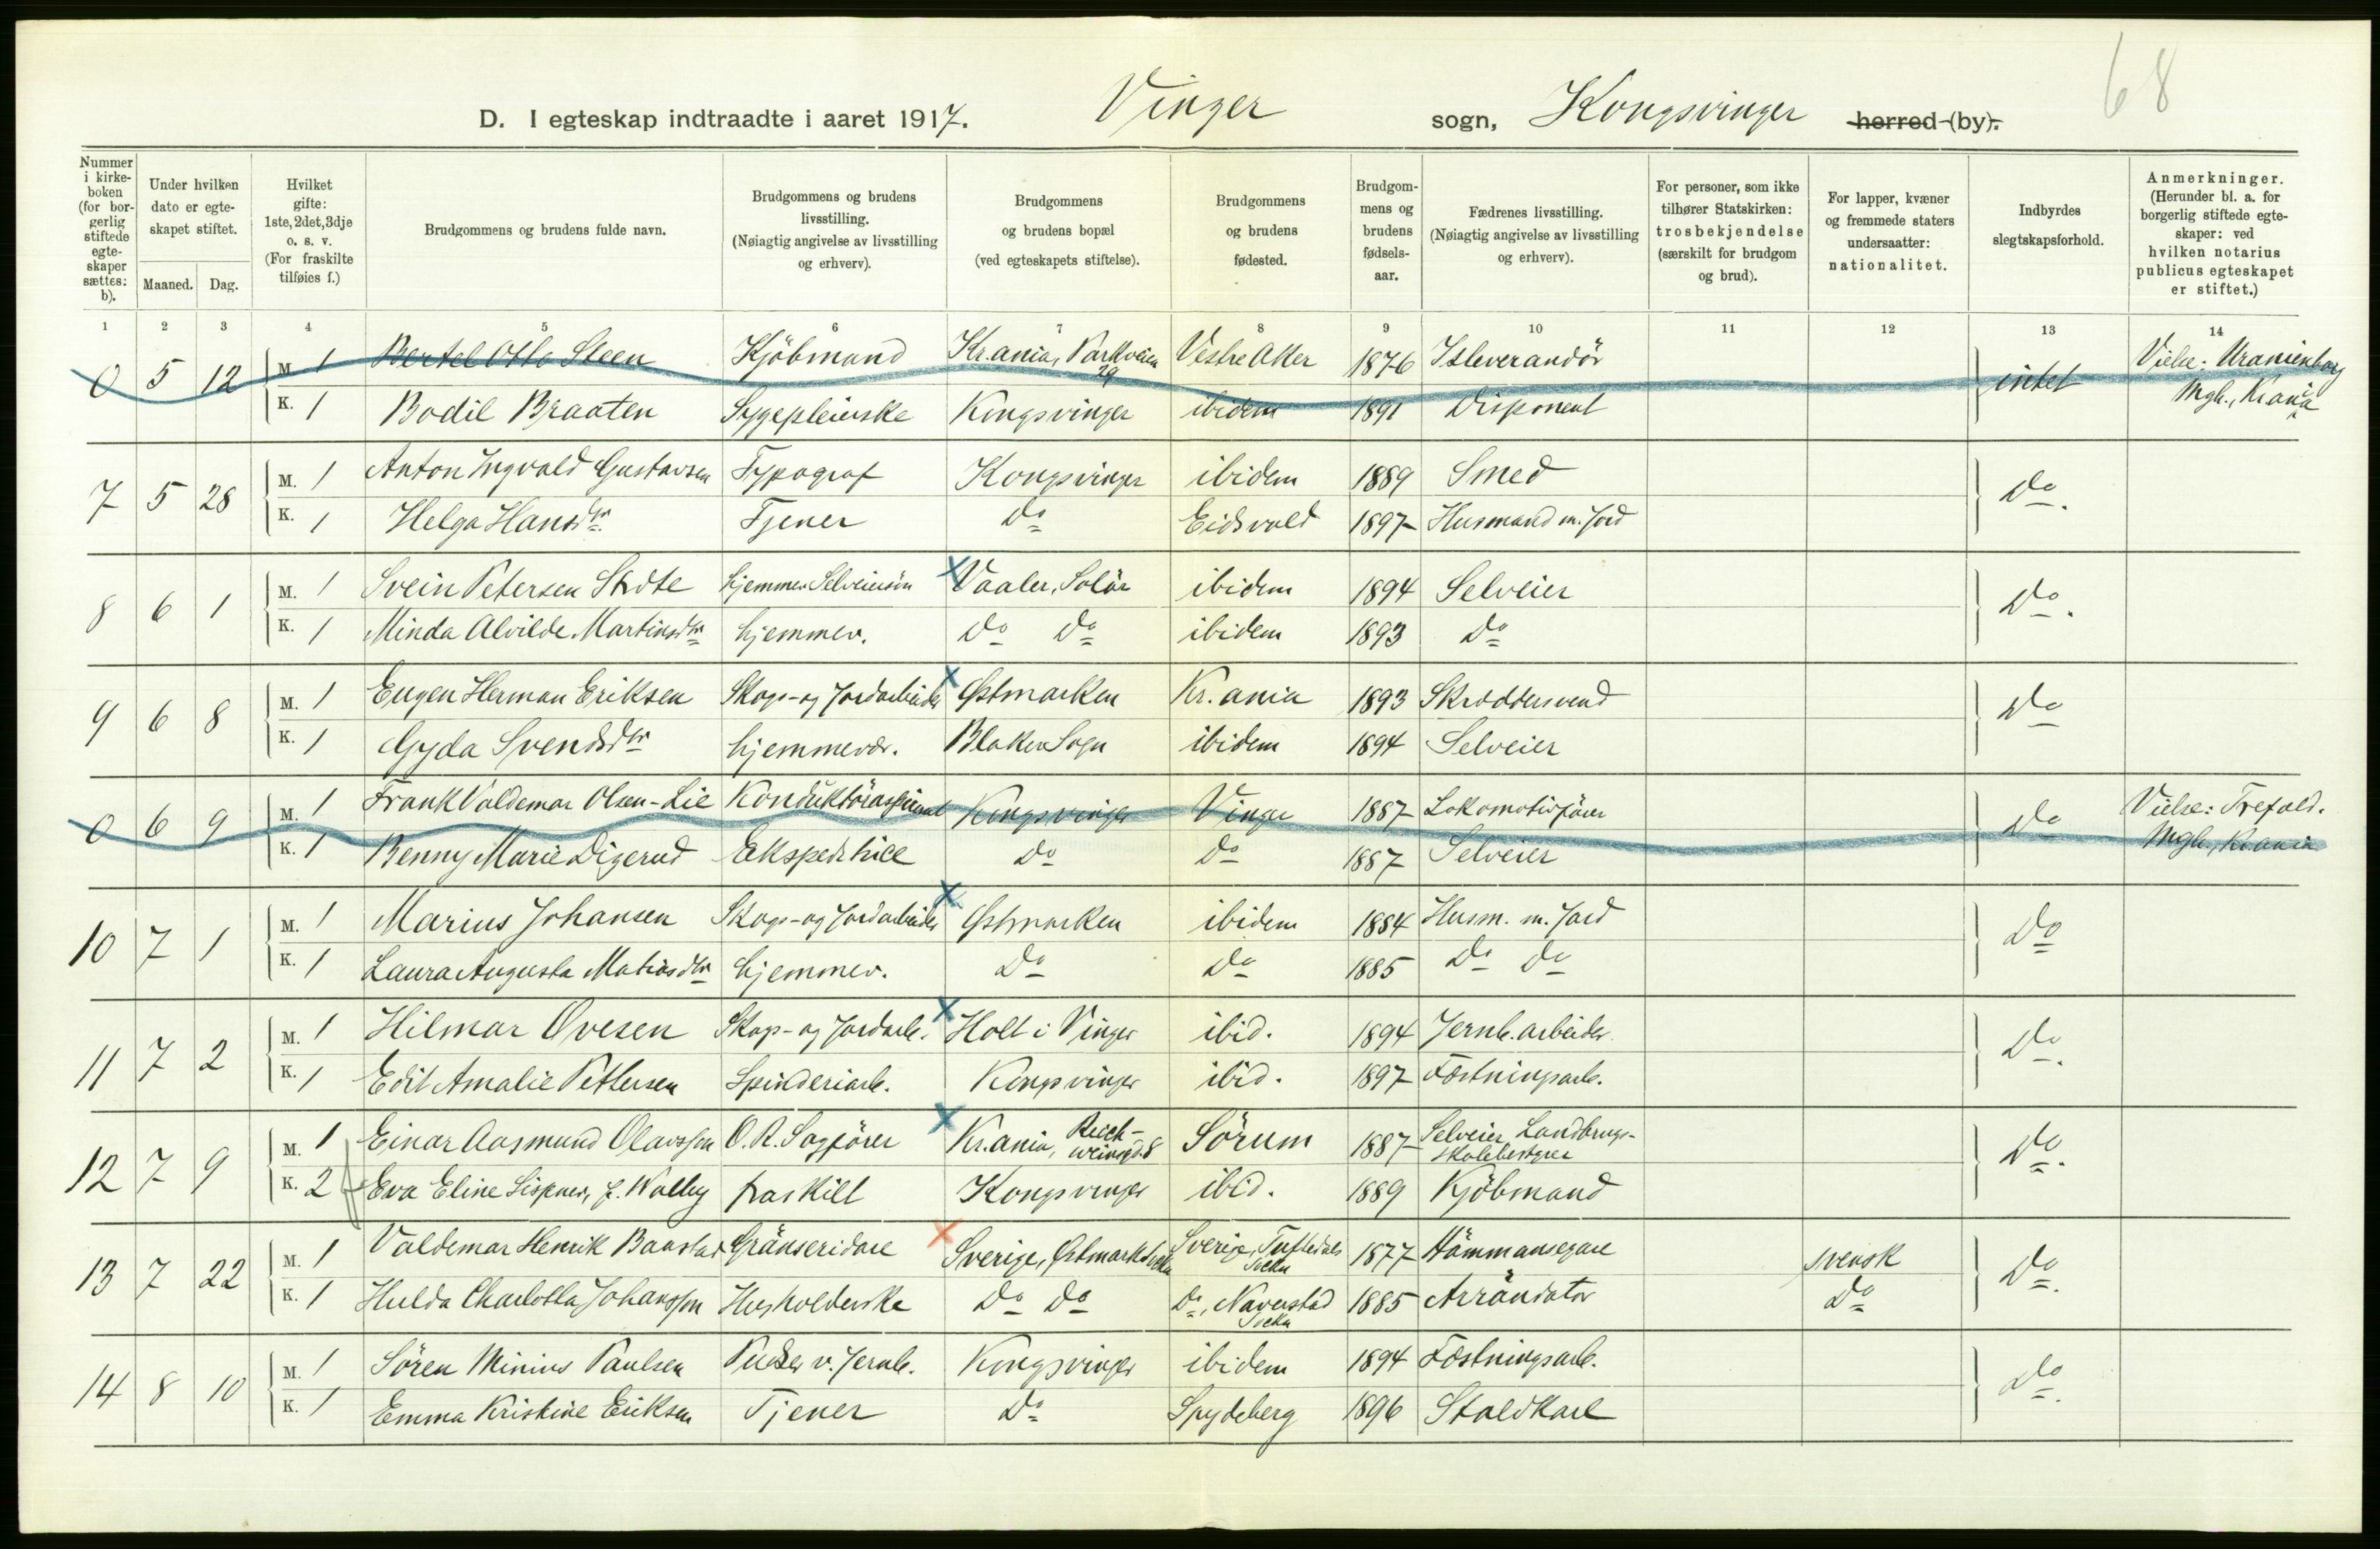 68
D. I egteskap indtraadte i aaret 1917. Vinger sogn, Kongsvinger herred (by).
Nummer i kirkeboken (for borgerlig stiftede egteskaper sættes: b).
Under hvilken dato er egteskapet stiftet.
Maaned. Dag.
Hvilket gifte: 1ste, 2det, 3dje o. s. v. (For fraskilte tilføies f.)
Brudgommens og brudens fulde navn.
Brudgommens og brudens livsstilling. (Nøiagtig angivelse av livsstilling og erhverv).
Brudgommens og brudens bopæl (ved egteskapets stiftelse).
Brudgommens og brudens fødested.
Brudgommens og brudens fødselsaar.
Fædrenes livsstilling. (Nøiagtig angivelse av livsstilling og erhverv).
For personer, som ikke tilhører Statskirken: trosbekjendelse (særskilt for brudgom og brud).
For lapper, kvæner og fremmede staters undersaatter: nationalitet.
Indbyrdes slegtskapsforhold.
Anmerkninger. (Herunder bl. a. for borgerlig stiftede egteskaper: ved hvilken notarius publicus egteskapet er stiftet.)
1 2 3 4 5 6 7 8 9 10 11 12 13 14
0 5 12 M. 1 Bertel Otto Steen Kjöbmand Kr.ania, Parkveien 29 Vestre Aker 1876 Isleverandör intet Vielse: Uranienborg
K. 1 Bodil Braaten Sygepleierske Kongsvinger ibidem 1891 Disponent Mgh., Kr.ania
7 5 28 M. 1 Anton Ingvald Gustavsen Typograf Kongsvinger ibidem 1889 Smed Do.
K. 1 Helga Hansdtr Tjener Do Eidsvold 1897 Husmand m. Jord
8 6 1 M. 1 Svein Petersen Stöte hjemmev. Selveiersön Vaaler, Solör ibidem 1894 Selveier Do.
K. 1 Minda Alvilde Martinsdtr hjemmev. Do Do ibidem 1893 Do
9 6 8 M. 1 Eugen Herman Eriksen Skogs- og Jordarbeider Østmarken Kr.ania 1893 Skræddersvend Do
K. 1 Gyda Svendsdtr hjemmevær. Blaker Sogn ibidem 1894 Selveier
0 6 9 M. 1 Frank Valdemar Olsen-Lie Konduktöraspirant Kongsvinger Vinger 1887 Lokomotivförer Do Vielse: Trefold.
K. 1 Benny Marie Digerud Ekspeditrice Do Do 1887 Selveier Mgh., Kr.ania
10 7 1 M. 1 Marius Johansen Skogs- og Jordarbeider Østmarken ibidem 1884 Husm. m. Jord Do
K. 1 Laura Augusta Matiasdtr hjemmev. Do Do 1885 Do Do
11 7 2 M. 1 Hilmar Ovesen Skogs- og Jordarb. Holt i Vinger ibid. 1894 Jernb.arbeider Do.
K. 1 Edit Amalie Pettersen Spinderiarb. Kongsvinger ibid. 1897 Fæstningsarb.
12 7 9 M. 1 Einar Aasmund Olavsson O.R. Sagförer Kr.ania, Sörum 1887 Selveier, Landbrugsskolebestyrer Do.
K. 2 f Eva Eline Lispner, f. Walby fraskilt Kongsvinger ibid. 1889 Kjöbmand
13 7 22 M. 1 Valdemar Henrik Baastad Gränseridare Sverige, Østmarks socken Sverige, Töftedals Socken 1877 Hämmansegare svensk Do.
K. 1 Hulda Charlotta Johansson Husholderske Do Do Do, Naverstad Socken 1885 Arrändator Do
14 8 10 M. 1 Sören Minius Paulsen Pudser v. Jernb. Kongsvinger ibidem 1894 Fæstningsarb. Do.
K. 1 Emma Kristine Eriksen Tjener Do Spydeberg 1896 Staldkarl